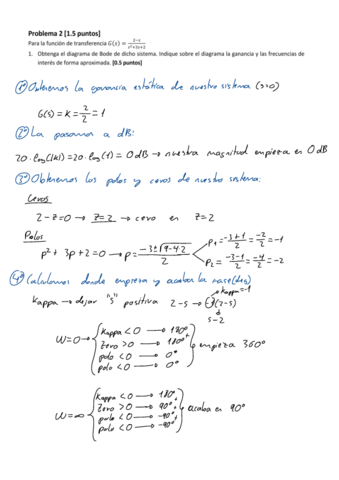 Problema 2 [1.5 puntos]
Para la función de transferencia G(s) = (2−s)/(s²+3s+2)
1. Obtenga el diagrama de Bode de dicho sistema. Indique sobre el diagrama la ganancia y las frecuencias de
interés de forma aproximada. [0.5 puntos]
1º Obtenemos la ganancia estática de nuestro sistema (s=0)
G(s) = K = 2/2 = 1
2º La pasamos a dB:
20·log(|K|) = 20·log(1) = 0 dB → nuestra magnitud empieza en 0 dB
3º Obtenemos los polos y ceros de nuestro sistema:
Ceros
2−z=0 → z=2 → cero en z=2
Polos
p²+3p+2=0 → p = (−3±√(9−4·2))/2
p₁ = (−3+1)/2 = −2/2 = −1
p₂ = (−3−1)/2 = −4/2 = −2
4º Calculamos donde empieza y acaba la fase(deg)
Kappa → dejar "s" positiva 2−s → (−)(2−s)
Kappa=−1
s−2
W=0 →
Kappa <0 → 180°
Zero >0 → 180°
polo <0 → 0°
polo <0 → 0°
empieza 360°
W=∞
Kappa <0 → 180°
Zero >0 → 90°
polo <0 → −90°
polo <0 → −90°
acaba en 90°